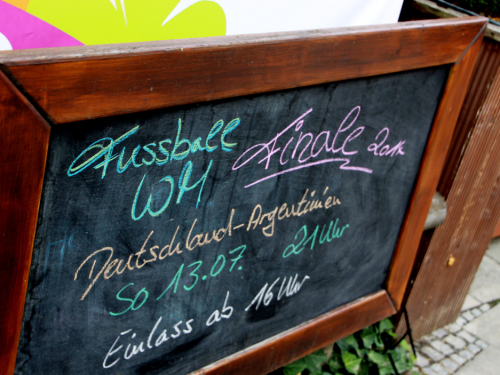 Fussball Finale 2014
WM
Deutschland-Argentinien
So 13.07. 21 Uhr
Einlass ab 16 Uhr